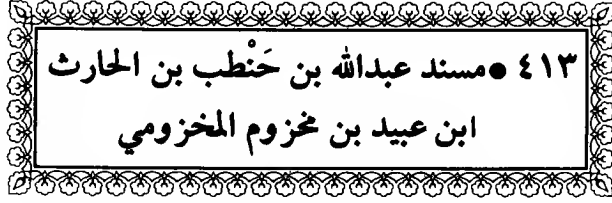 ٤١٣ ●مسند عبدالله بن حَنْطب بن الحارث
ابن عبيد بن مخزوم المخزومي